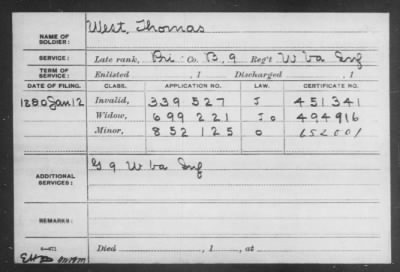 NAME OF SOLDIER: West, Thomas
SERVICE: Late rank, Pri. Co. B, 9 Reg't W Va Inf
TERM OF SERVICE: Enlisted , 1 Discharged , 1
DATE OF FILING. CLASS. APPLICATION NO. LAW. CERTIFICATE NO.
1880 Jan 12 Invalid, 339 527 J 451341
Widow, 699 221 J o 494916
Minor, 852 125 o 652001
ADDITIONAL SERVICES: G 9 W Va Inf
REMARKS:
Died , 1 , at